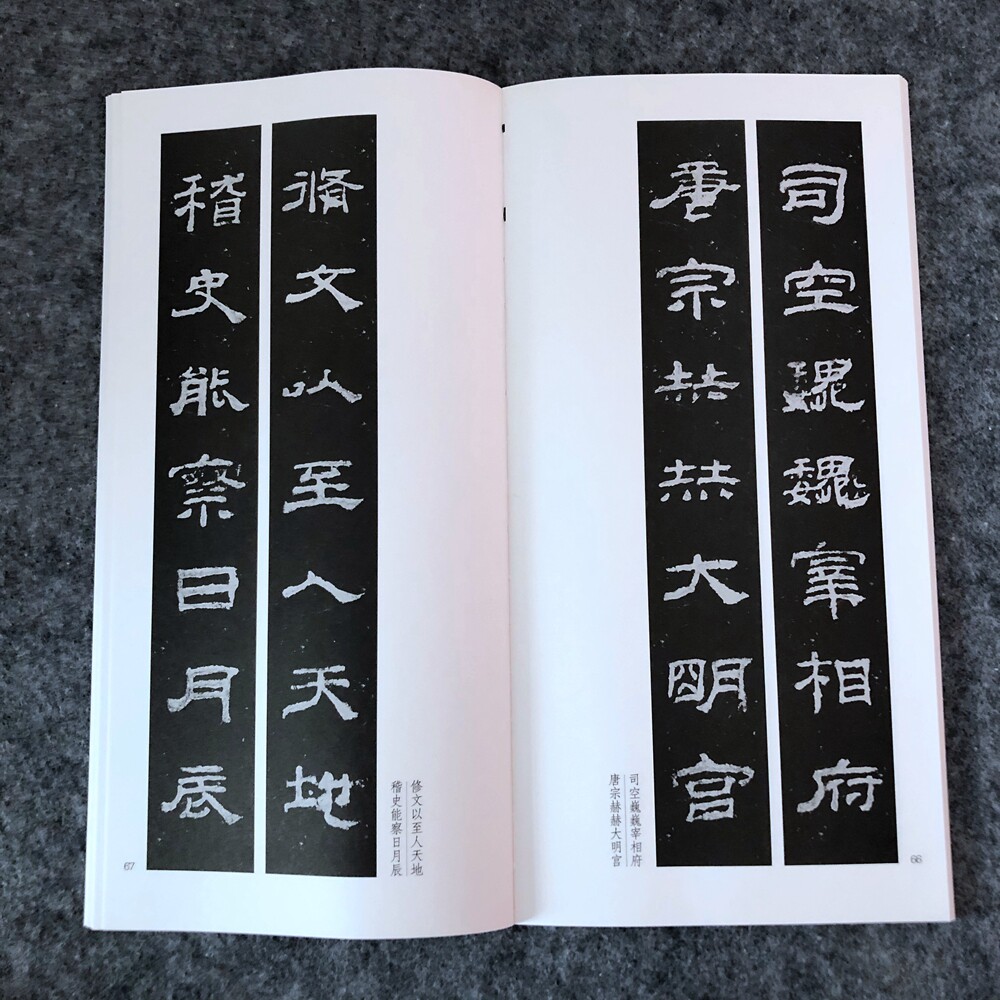 司空巍巍宰相府
唐宗赫赫大明宫
司空巍巍宰相府
唐宗赫赫大明宫
66
修文以至人天地
稽史能察日月辰
修文以至人天地
稽史能察日月辰
67